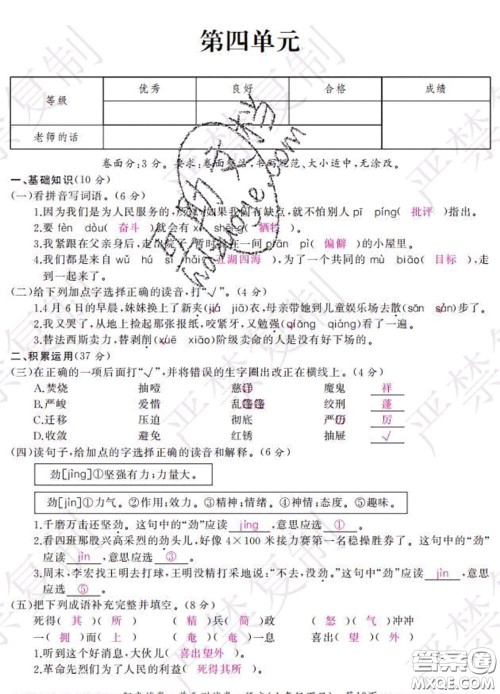 第四单元
优秀 良好 合格 成绩
等级
老师的话
卷面分:3分。要求:卷面整洁,书写规范、大小适中,无涂改。
一、基础知识(10分)
(一)看拼音写词语。(6分)
1.因为我们是为人民服务的,所以如果我们有缺点,就不怕别人 pī píng( 批评 )指出。
2.要 fèn dòu( 奋斗 )就会有 xī shēng( 牺牲 )。
3.我紧跟在父亲身后,走出院子,暂时住在一间 piān pì( 偏僻 )的小屋里。
4.我们都是来自 wǔ hú sì hǎi( 五湖四海 ),为了一个共同的 mù biāo( 目标 ),走
到一起来了。
(二)给下列加点字选择正确的读音,打“✓”。(4分)
1.4月6日的早晨,妹妹换上了新夹(jiá jiā)衣,母亲带她到儿童娱乐场去散(sǎn sàn)步。
2.我又哭了,从地上捡起那张报纸,咬紧牙,又勉强(qiǎng qiáng)看了一遍。
3.替法西斯卖力,替剥削(xuē xiāo)阶级卖命的人是没有好下场的。
二、积累运用(37分)
(三)在正确的一项后面打“✓”,并将错误的生字圈出改正在横线上。(4分)
A.焚烧 抽噎 慈洋 魔鬼 祥
B.严峻 爱惜 乱篷篷 绞刑 蓬
C.迁移 压迫 彻底 严历 厉
D.收敛 避免 红锈 抽屉 ✓
(四)读句子,给加点的字选择正确的读音和解释。(6分)
劲[jìng]①坚强有力;力量大。
劲[jìn]①力气。②作用;效力。③精神;情绪。④神情;态度。⑤趣味。
1.千磨万击还坚劲。这句中的“劲”应读 jìng ,意思应选 ① 。
2.看四班那股兴高采烈的劲头儿,好像4×100米接力赛第一名稳操胜券了。这句中的“劲”
应读 jìn ,意思应选 ③ 。
3.周末,李宏找王明去打球,王明没精打采地说:“不去,没劲。”这句中的“劲”应
读 jìn ,意思应选 ⑤ 。
(五)把下列成语补充完整并填空。(8分)
死得( 其 )( 所 ) ( 精 )兵( 简 )政 ( 怒 )( 气 )冲冲
一( 拥 )而( 上 ) ( 奄 )( 奄 )一息 ( 喜 )出( 望 )外
1.听到这个好消息,大伙儿( 喜出望外 )。
2.革命先烈们为了人民的利益( 死得其所 )。